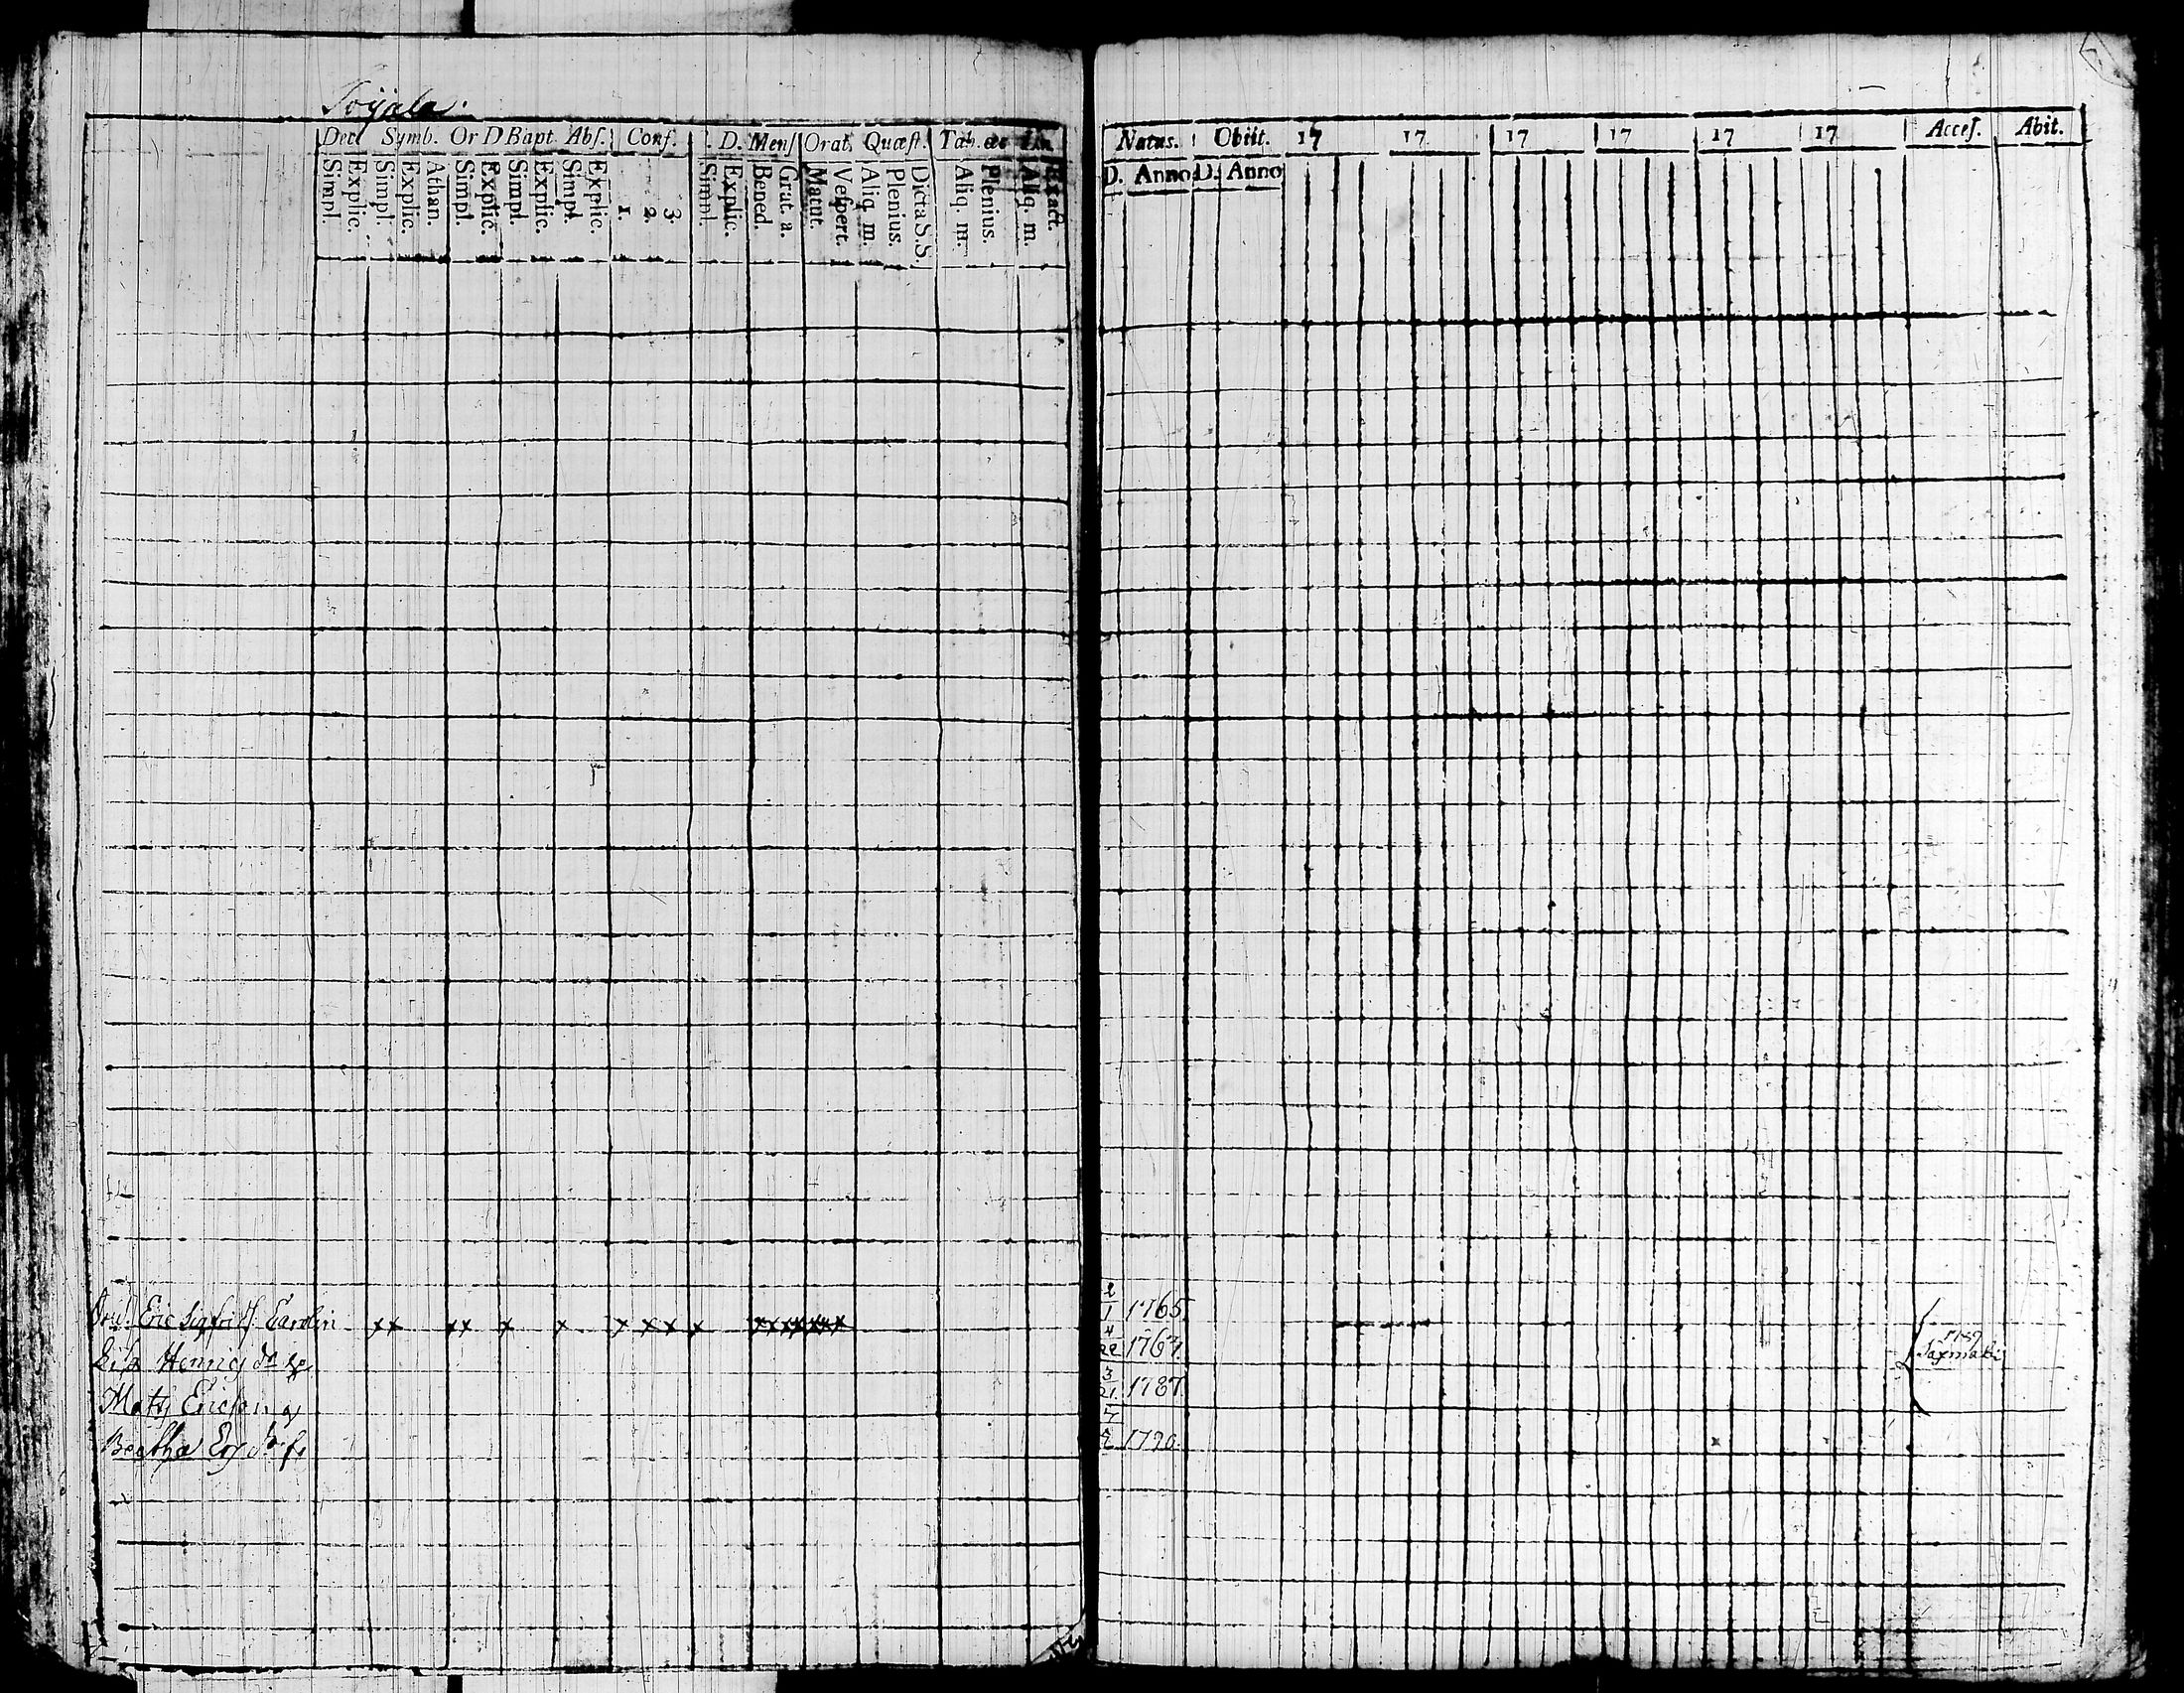 Toijala.
Dec Symb. Or D Bapt Abs. Conf. D. Mens Orat. Quæst. Tab. œc
Simpl. Explic. Simpl. Explic. Athan. Simpl. Explic. Simpl. Explic. Simpl. Explic. 1. 2. 3. Simpl. Explic. Bened. Grat. a. Matut. Vespert. Aliq. m. Plenius. Dicta S.S. Aliq. m. Plenius. Aliq. m. Exact.
Natus. Obiit. 17 17 17 17 17 17 Acces. Abit.
D. Anno D. Anno
Eric Sigfridss Carolin x x x x x x x x x x x x x x x x x x
2/1 1765
Lisa Henrics dr
4/22 1767
1789
Matts Ericson
3/21 1787
Beatha dr
1790